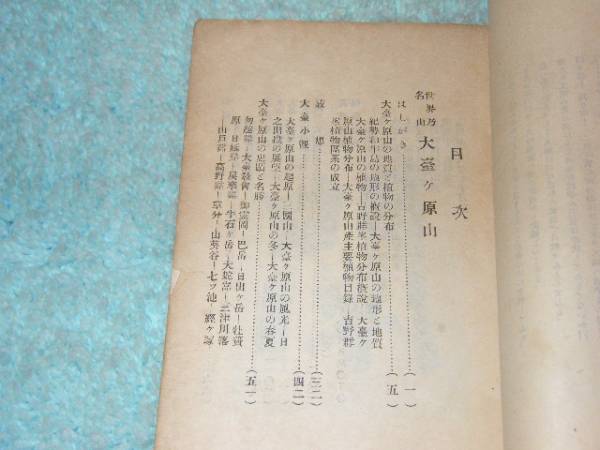 目次
世界乃名山 大臺ヶ原山
はしがき………(一)
大臺ヶ原山の地質と植物の分布………(五)
紀勢和半島の地形の概説―大臺ヶ原山の地形と地質
大臺ヶ原山の植物―吉野群山植物分布概説―大臺ヶ
原山植物分布―大臺ヶ原山產主要植物目錄―吉野群
山植物區系の成立
感想………(三二)
大臺小觀………(四二)
大臺ヶ原山の起原―三國山―大臺ヶ原山の風光―日
の出後の展望―大臺ヶ原山の冬―大臺ヶ原山の春夏
大臺ヶ原山の史蹟と名勝………(五一)
大臺敎會―巴岳―日出ヶ岳―牡蠣
原―牛石ヶ原―大蛇嵓―三津川落
―高野谷―山葵谷―七ツ池